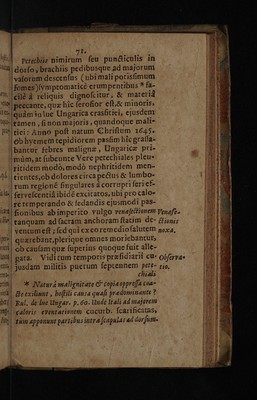 71.
Petechiis nimirum seu puncticulis in
dorso, brachiis pedibusque ad majorum
valorum descensus (ubi mali potissimum
fomes) symptomaticè erumpentibus * fa-
cilè á reliquis dignoscitur, & materiâ
peccante, quæ hîc ferosior est, & minoris,
quàm in loc Ungarica crassitiei, ejusdem
tamen, si non majoris, quandoque mali-
tiei: Anno post natum Christum 1645.
ob hyemem tepidiorem passim hîc grassa-
bantur febres malignæ, Ungaricæ pri-
mùm, at subeunte Vere petechiales pleu-
ritidem modò, modò nephritidem men-
tientes, ob dolores circa pectus & lumbo-
rum regionē singulares á corrupti seri ef-
fervescentiâ ibidē excitatos, ubi pro calo-
re temperando & sedandis ejusmodi pas-
sionibus ab imperito vulgo venæsectionem
tanquam ad sacram anchoram statim de-
ventum est; sed qui ex eo remedio salutem
quærebant, plerique omnes moriebantur,
ob causam quæ superius quoque fuit alle-
gata. Vidi tum temporis præsidiarii cu-
jusdam militis puerum septennem pete-
chiali
Venæse-
ctionis
noxa.
Observa-
tio.
* Naturâ malignitate & copiâ oppressâ coa-
cte exiliunt, hostili causâ quasi prædominante?
Rul. de lue Ungar. p. 60. Unde Itali ad majorem
caloris eventationem cucurb. scarificatas,
tùm apponunt partibus intra scapulas ad dorsum.